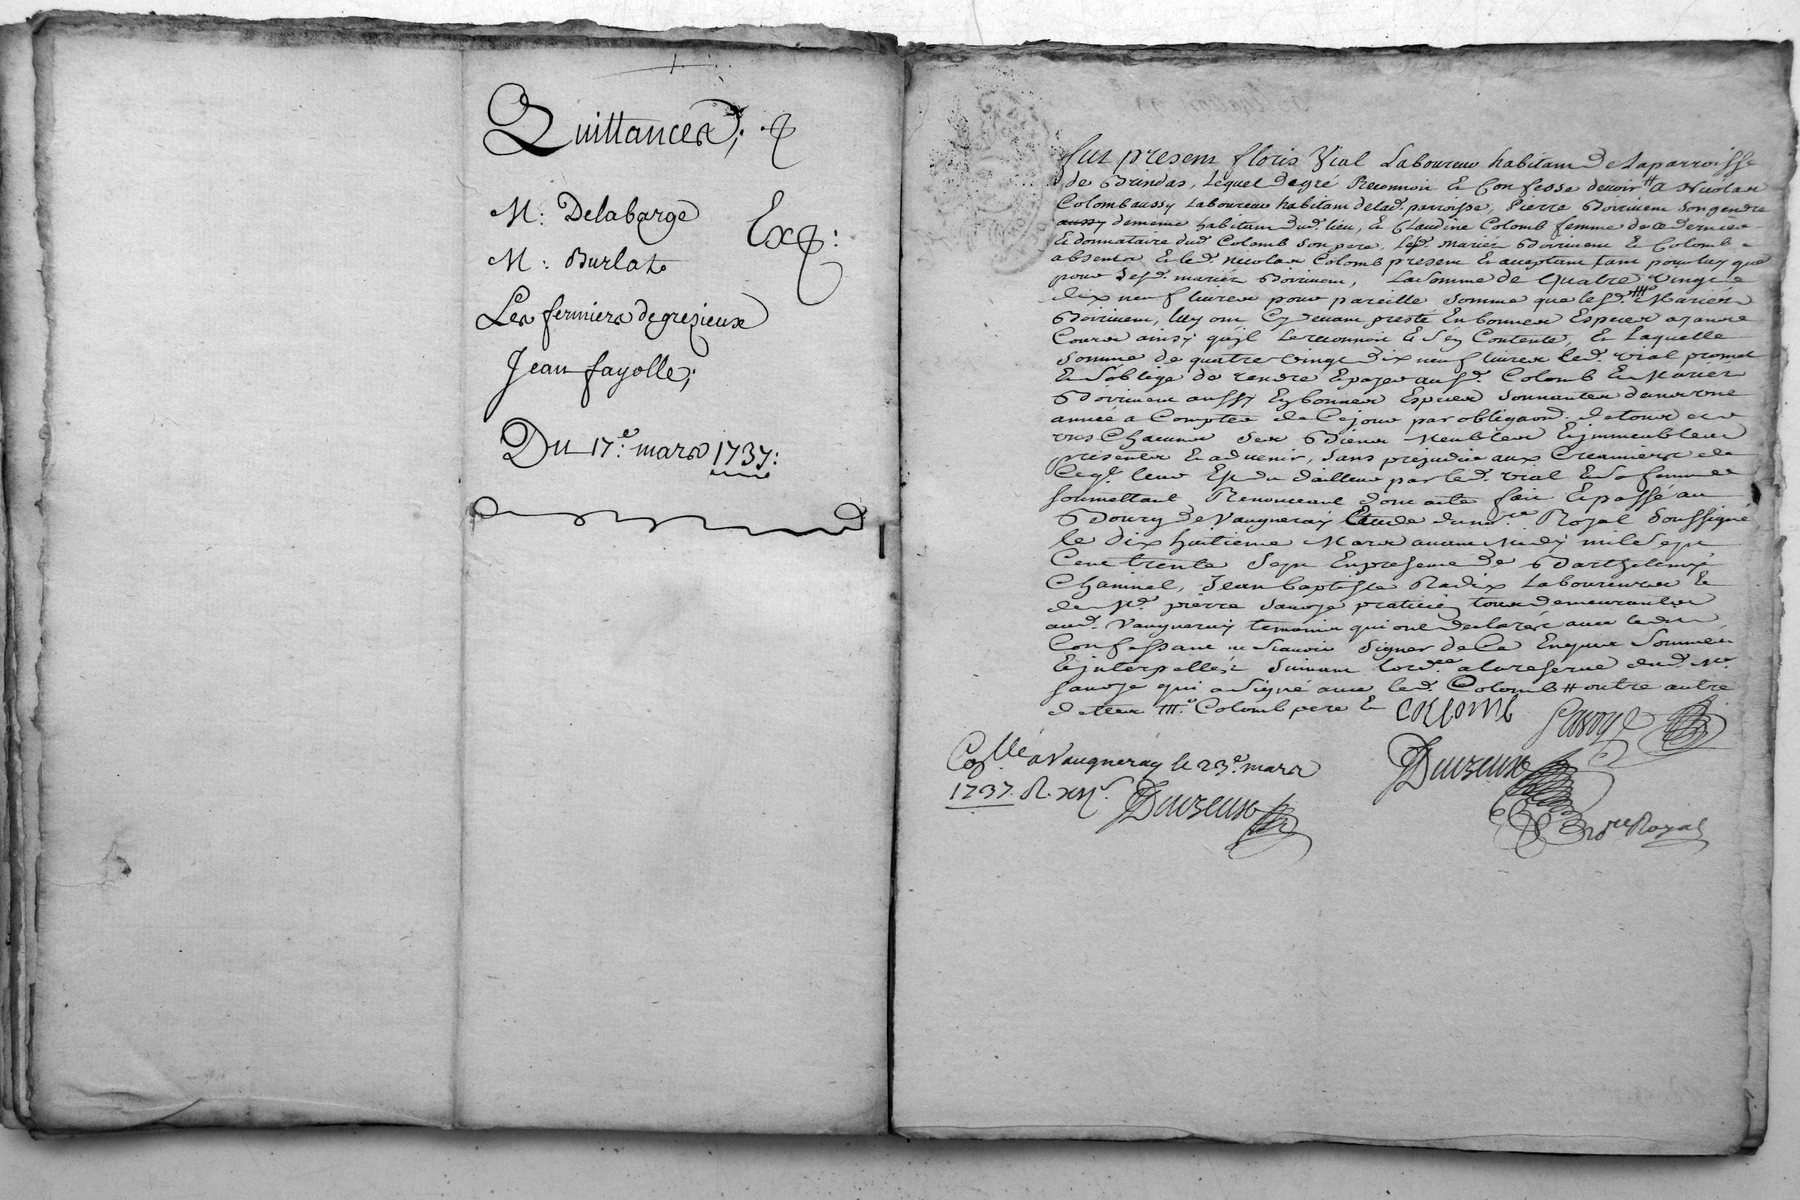 Quittances;
M: Delabarge
Exp:
M: Burlat
Les fermiers de grezieux
Jean fayolle;
Du 17e: mars 1737:
fut present floris Vial Laboureur habitant de Laparroisse
de Brindas, Lequel degré Reconnoit et Confesse devoir # a Nicolas
Colomb aussy Laboureur habitant delad. parroisse, Pierre Boirivent son gendre
aussy dememe habitant dud. lieu, et Claudine Colomb femme de ce dernier
et donnataire dud. Colomb son pere, Lesd. mariés Boirivent et Colomb
absents et led. Nicolas Colomb present et acceptant tant pour luy que
pour lesd. mariés Boirivent, La somme de Quatre vingt
dix neuf livres pour pareille somme que lesd. Mariés
Boirivent, luy ont Cy devant presté En bonnes Especes ayant
Cours ainsy qu'il Le reconnoit et s'en Contente, et Laquelle
somme de quatre vingt dix neuf livres led. Vial promet
et s'oblige de rendre et payer ausd. Colomb et Mariés
Boirivent aussy En bonnes Especes sonnantes dans une
année a Compter de Ce jour par obligaon. de tous et
uns Chacuns ses Biens Meubles et immeubles
presents et advenir, sans prejudice aux Creanciers de
Ce ql. leur Est du d'ailleur par led. Vial et sa femme
soumettant Renonceant dont acte fait et passé au
Bourg de Vaugneray Etude du nre. Royal soussigné
le dix huitieme Mars avant Midy mil sept
Cent trente sept En presence de Barthelemy
Chaninel, Jean baptiste Radix Laboureurs et
de Me. pierre Savoye praticien tous demeurants
aud. Vaugneray temoins qui ont declarés avec led.
Confessant ne scavoir signer de Ce Enquis sommés
et interpellés suivant l'ordce. a la reserve dud. Me.
Savoye qui a signé avec led. Colomb # outre autre
dettes Colomb pere et
COLLOMB
Savoye
Duvzeux
Conllé a Vaugneray le 23e. mars
1737. R. XII s.
Duvzeux
Nore Royal